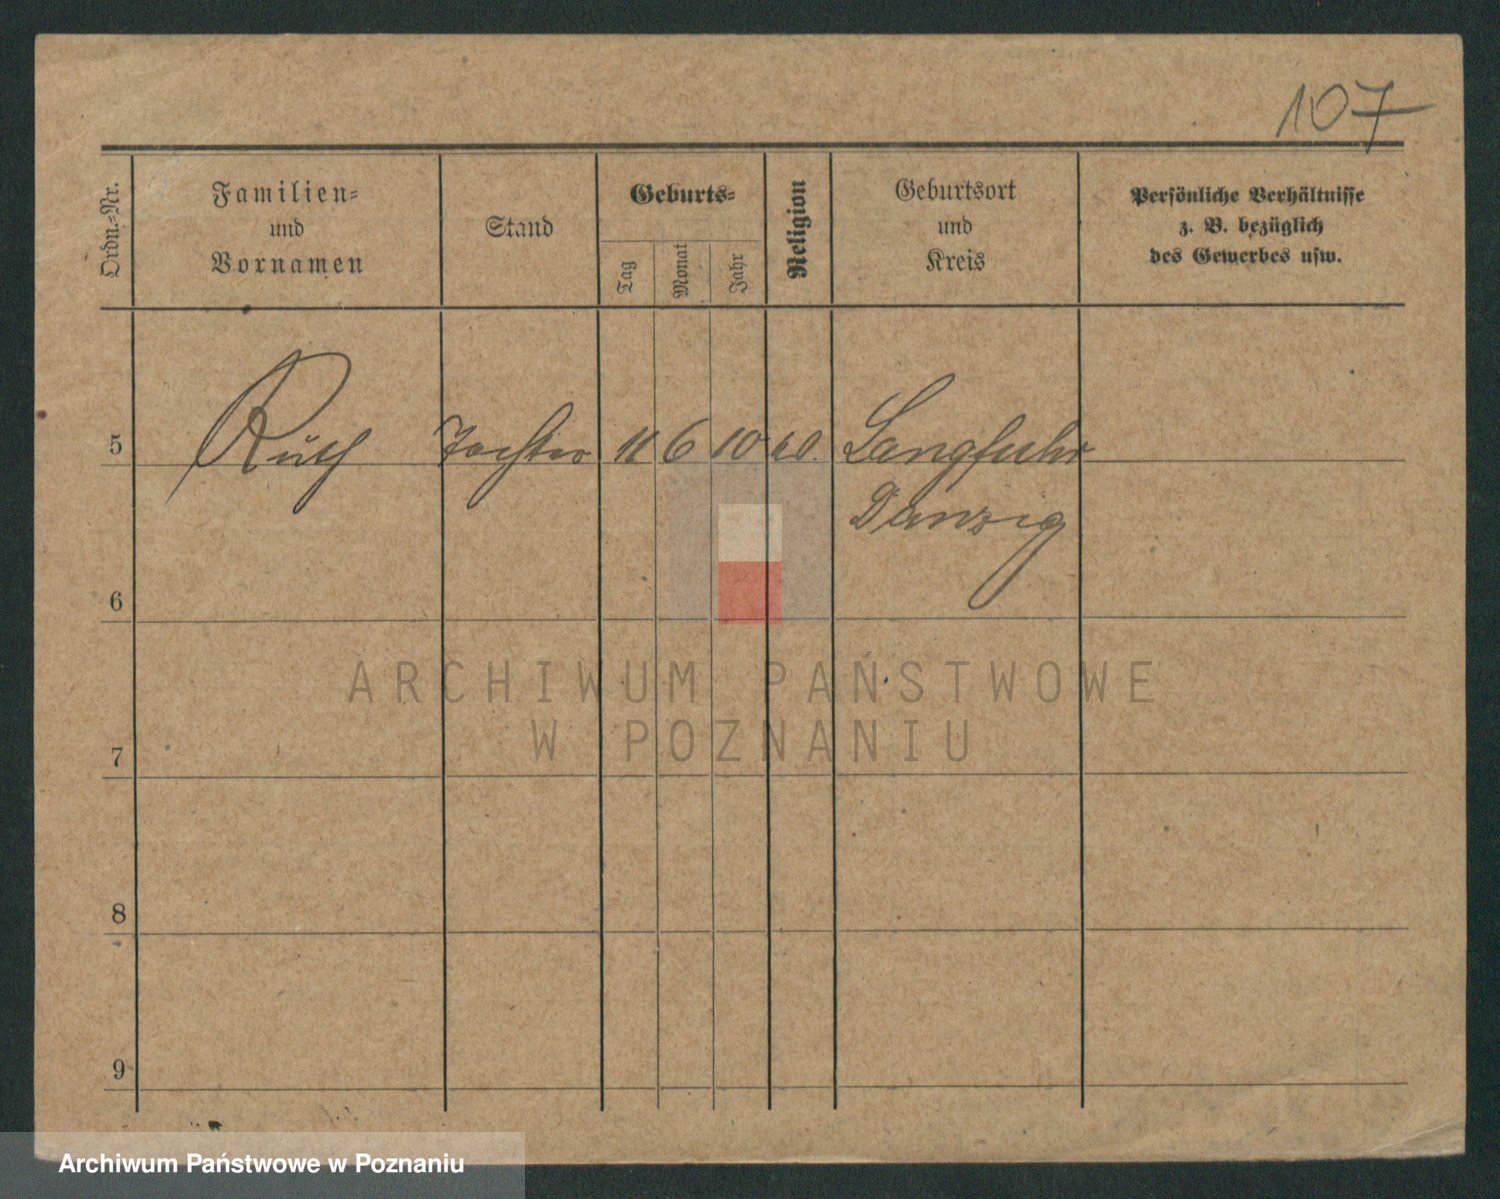 107
Ordn.-Nr.
Familien-
und
Vornamen
Stand
Geburts-
Tag
Monat
Jahr
Religion
Geburtsort
und
Kreis
Persönliche Verhältnisse
z. B. bezüglich
des Gewerbes usw.
5 Ruth Tochter 11 6 10 Langfuhr
Danzig
6
7
8
9
ARCHIWUM PAŃSTWOWE
W POZNANIU
Archiwum Państwowe w Poznaniu